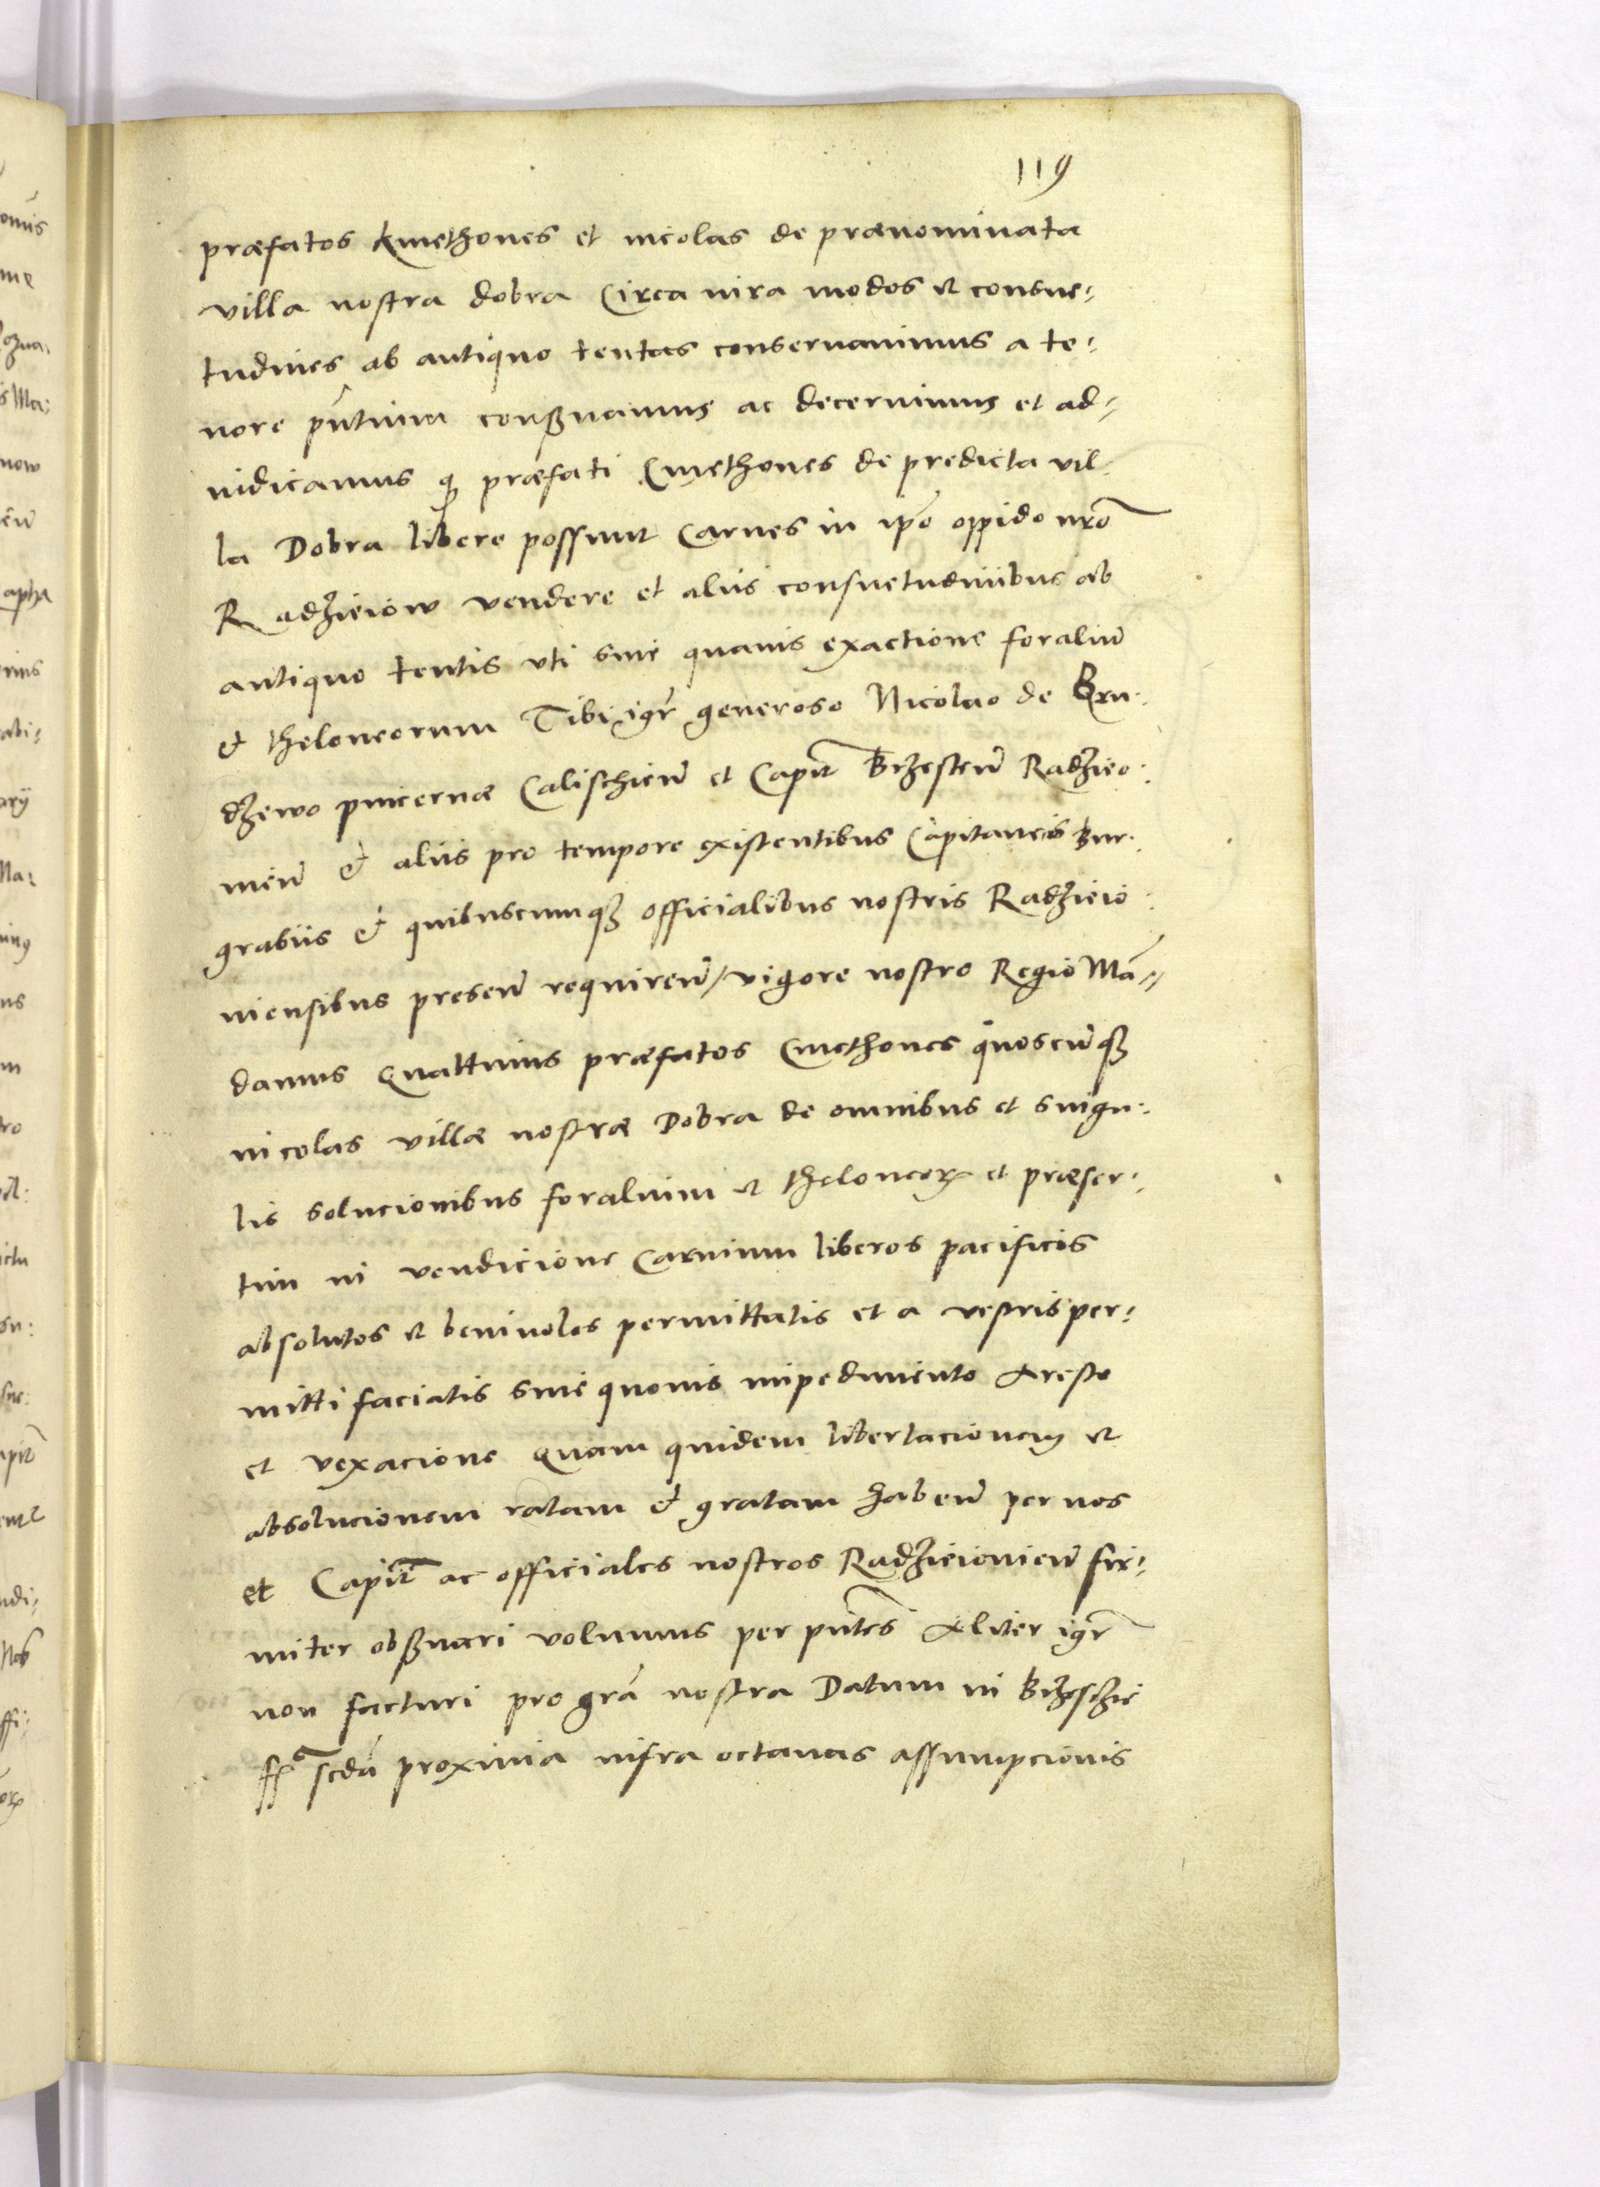 119
præfatos kmethones et incolas de prænominata
villa nostra dobra Circa iura modos et consue-
tudines ab antiquo tentas conservavimus a te-
nore pñtium conßvamus ac decernimus et ad-
iudicamus q præfati Cmethones de predicta vil
la Dobra libere possunt Carnes in ipo oppido nro
Radzieiow vendere et aliis consuetudinibus ab
antiquo tentis vti sine quavis exactione foraliu
et theloneorum Tibi igr generoso Nicolao de Bru-
dzewo pincernæ Calischien et Capit Brzesten Radzieio-
uien et aliis pro tempore existentibus Capitaneis Bur-
grabiis et quibuscumq officialibus nostris Radzieio-
uiensibus presen requiren / vigore nostro Regio Mã-
damus Quattinus præfatos Cmethones quoscunq
incolas villæ nostræ Dobra de omnibus et singu-
lis solucionibus foralium et theloneor et præser-
tim in vendicione Carnium liberos pacificos
absolutos et benivolos permittatis et a vestris per-
mitti faciatis sine quovis impedimento Aresto
et vexacione Quam quidem libertacionem et
absolucionem ratam et gratam haben per nos
et Capit ac officiales nostros Radzieiovien fir-
miter obßvari volumus per pntes Aliter igr
non facturi pro gra nostra Datum in Brzeschie
ff^a scda proxima infra octavas assumpcionis